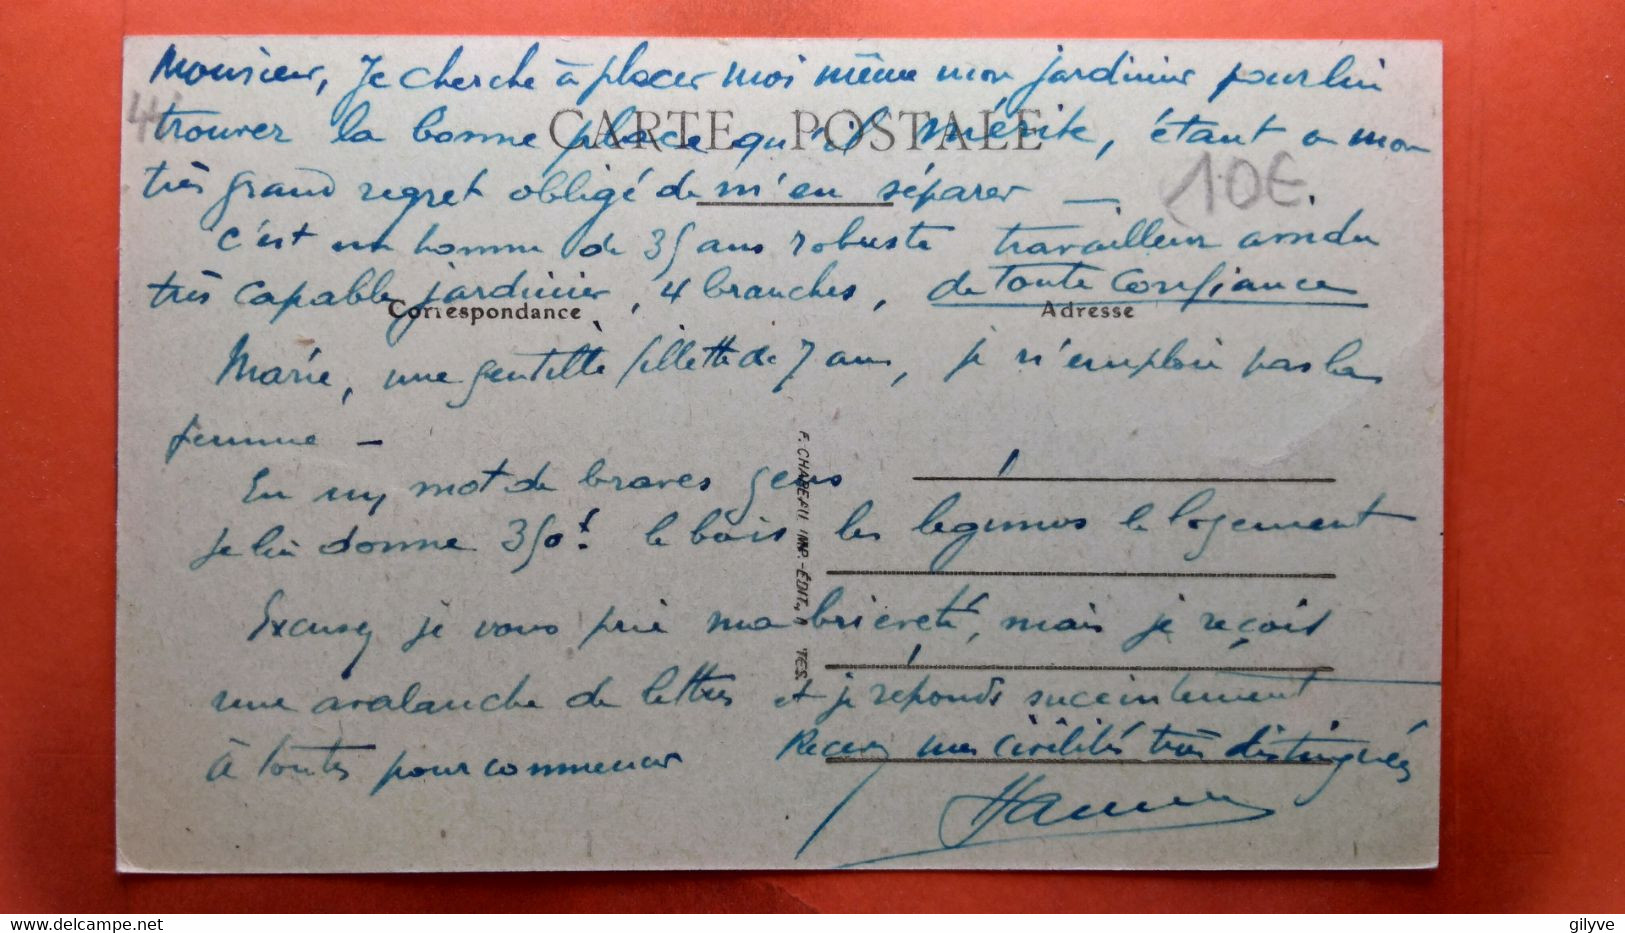 Monsieur, Je cherche à placer moi même mon jardinier pour lui
44
CARTE POSTALE
trouver la bonne place qu'il mérite, étant a mon
très grand regret obligé de m'en séparer —
10€
c'est un homme de 35 ans robuste travailleur assidu
très capable jardinier, 4 branches, de toute confiance
Correspondance
Adresse
Marié, une gentille fillette de 7 ans, je n'emploie pas la
femme —
En un mot de braves gens
je lui donne 350f. le bois les légumes le logement
F. CHAPEAU IMP.-ÉDIT., TES.
Excusez je vous prie ma brièveté, mais je reçois
une avalanche de lettres et je réponds succintement
à toutes pour commencer Recevez mes civilités très distinguées
gilyve
delcampe.net